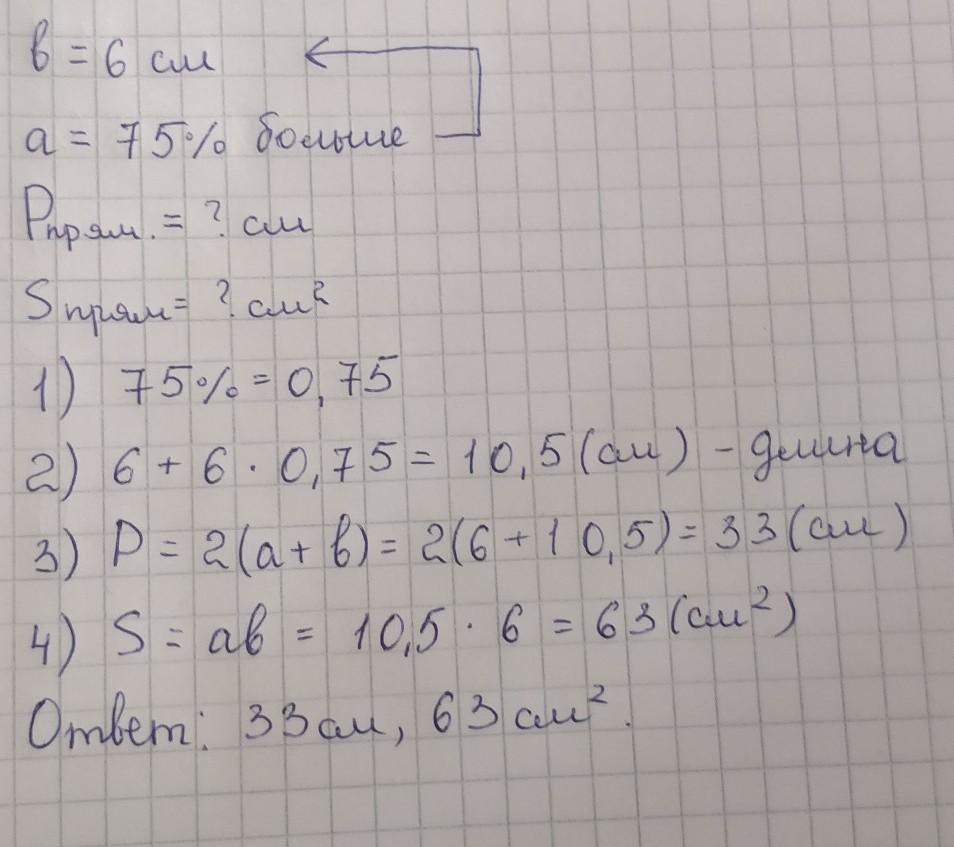 в = 6 см
a = 75% больше
Pпрям. = ? см
Sпрям = ? см²
1) 75% = 0,75
2) 6 + 6 · 0,75 = 10,5 (см) - длина
3) P = 2(a + в) = 2(6 + 10,5) = 33 (см)
4) S = aв = 10,5 · 6 = 63 (см²)
Ответ: 33 см, 63 см².